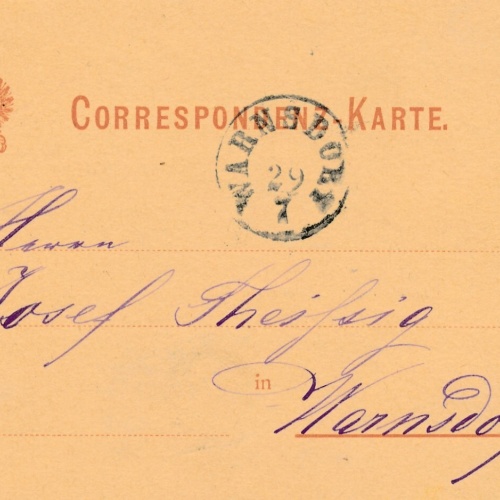 CORRESPONDENZ-KARTE.
WARNSDORF
29
7
Herrn
Josef Theißig
in
Warnsdo